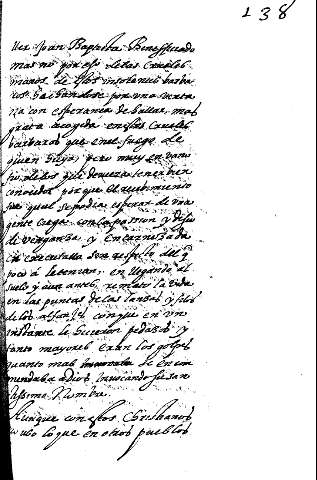 138
Juan Baptista Beneficiado
mas no por eso de las crueles
manos de estos insolentes barba
ros por una venta
na con esperanza de hallar, mas
grata acogida en los crueles
barbaros que en el fuego de
quien huya, pero muy en vano
que devieran tener bien
conocidos porque el recivimiento
fue qual se podia esperar de una
gente ciega con la pasion y deseo
de venganza y encarnizada
en executalla son respeto del q
poco a le benzan, en llegando al
suelo y aun antes, remato la vida
en las puntas de las lanzas y filos
de los alfanjes con que en un
instante le hicieron pedazos, y
tanto mayores eran los golpes
quanto mas el se enco
mendaba a Dios invocando su san
tissimo Nombre.
Aunque con estos Christianos
uvo lo que en otros pueblos